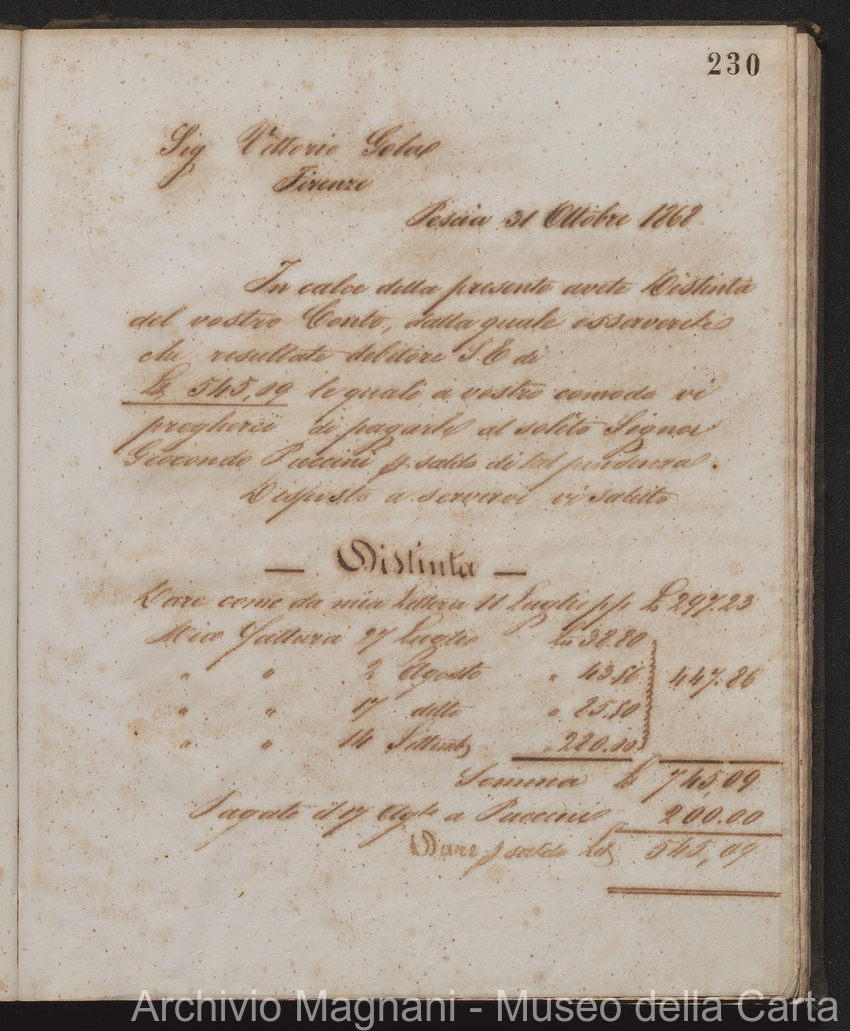 230
Sig Vittorio
Firenze
Pescia 31 Ottobre 1868
In calce della presente avete Distinta
del vostro Conto, dalla quale osserverete
che resultate debitore S.E. di
545,09 le quali a vostro comodo vi
pregherei di pagarle al solito Signor
Giocondo Puccini p saldo di tal pendenza.
Disposto a servirvi vi saluto
— Distinta —
Dare come da mia lettera 11 Luglio pp 297.23
Mia fattura 27 Luglio
" " 2 Agosto " 447.86
" " 17 detto "
" " 14
Somma 745,09
Pagato il 17 Agto a Puccini 200.00
Dare p saldo 545,09
Archivio Magnani - Museo della Carta